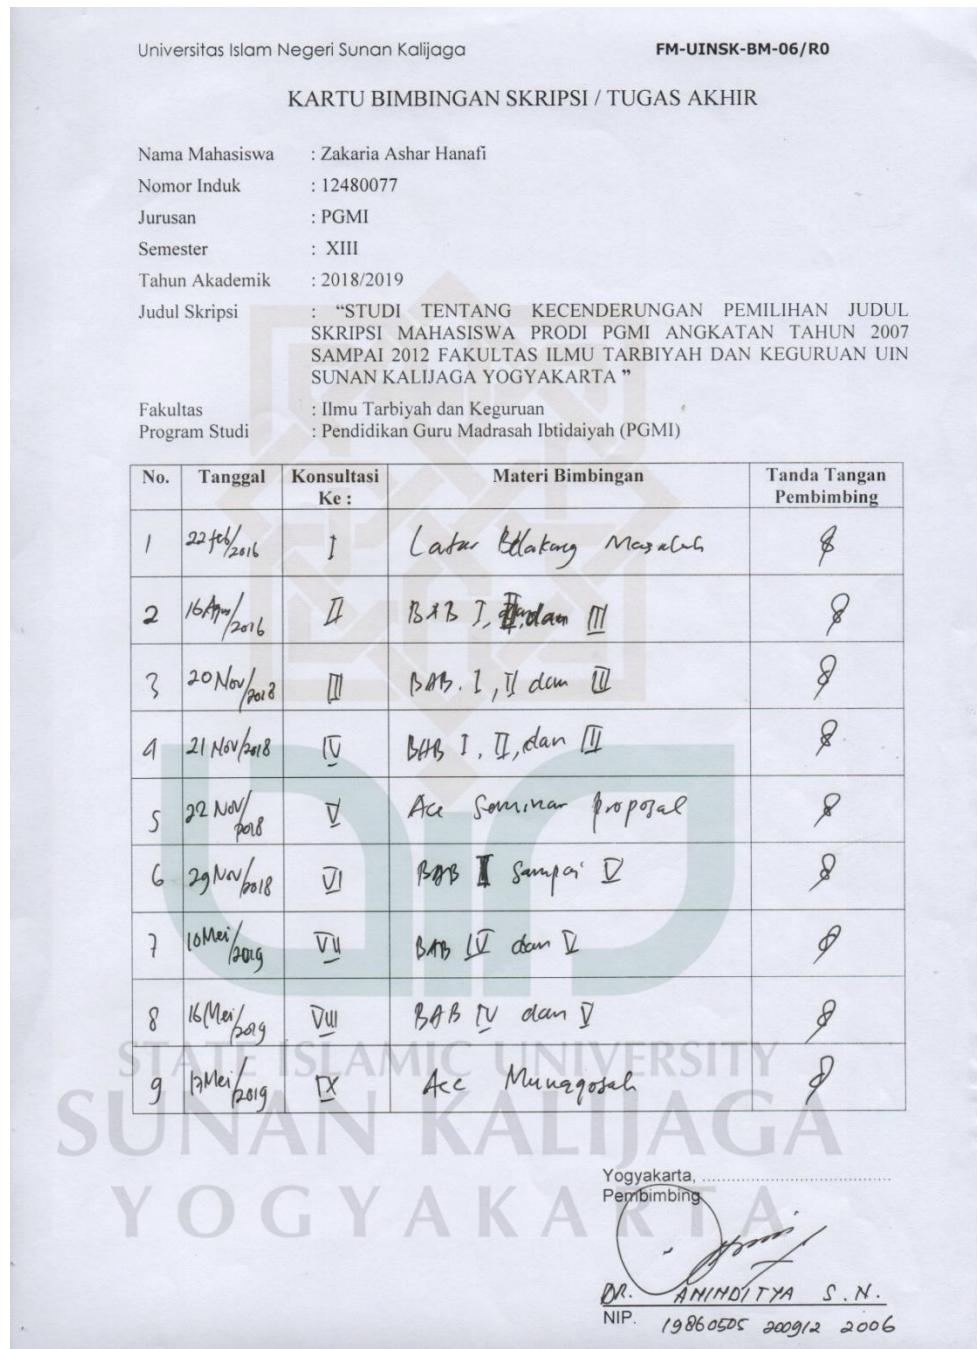 Universitas Islam Negeri Sunan Kalijaga FM-UINSK-BM-06/R0
KARTU BIMBINGAN SKRIPSI / TUGAS AKHIR
Nama Mahasiswa : Zakaria Ashar Hanafi
Nomor Induk : 12480077
Jurusan : PGMI
Semester : XIII
Tahun Akademik : 2018/2019
Judul Skripsi : “STUDI TENTANG KECENDERUNGAN PEMILIHAN JUDUL
SKRIPSI MAHASISWA PRODI PGMI ANGKATAN TAHUN 2007
SAMPAI 2012 FAKULTAS ILMU TARBIYAH DAN KEGURUAN UIN
SUNAN KALIJAGA YOGYAKARTA ”
Fakultas : Ilmu Tarbiyah dan Keguruan
Program Studi : Pendidikan Guru Madrasah Ibtidaiyah (PGMI)
No. Tanggal Konsultasi Ke : Materi Bimbingan Tanda Tangan Pembimbing
1 22 feb/2016 I Latar Belakang Masalah
2 16 Agus/2016 II BAB I, II, dan III
3 20 Nov/2018 III BAB. I, II dan III
4 21 Nov/2018 IV BAB I, II, dan III
5 22 Nov/2018 V Acc Seminar proposal
6 29 Nov/2018 VI BAB I Sampai V
7 10 Mei/2019 VII BAB IV dan V
8 16 Mei/2019 VIII BAB IV dan V
9 17 Mei/2019 IX Acc Munaqosah
STATE ISLAMIC UNIVERSITY
SUNAN KALIJAGA
YOGYAKARTA
Yogyakarta, ..........................................
Pembimbing
DR. ANINDITYA S.N.
NIP. 19860505 200912 2006